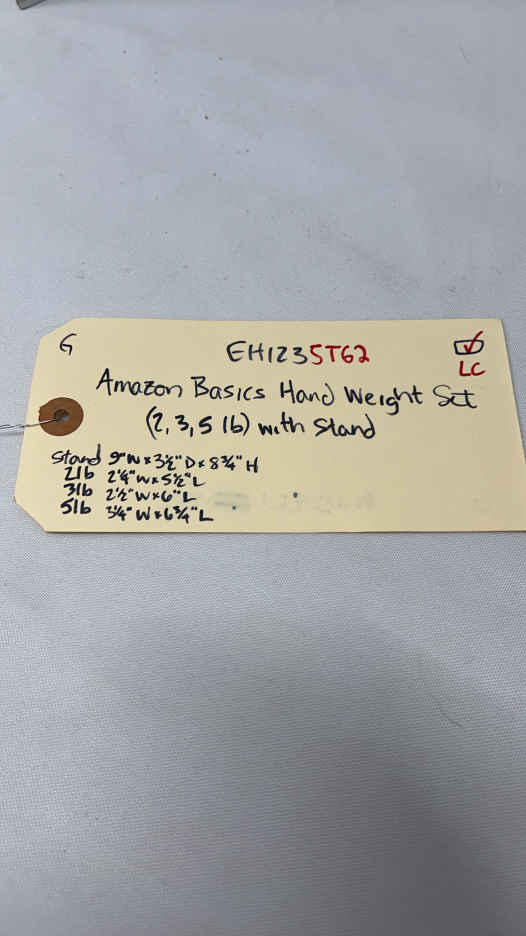 G
EH1235T62
LC
Amazon Basics Hand Weight Set
(2, 3, 5 lb) with Stand
Stand 9"W x 3½"D x 8¾"H
2lb 2¼"W x 5½"L
3lb 2½"W x 6"L
5lb 3¼"W x 6¾"L